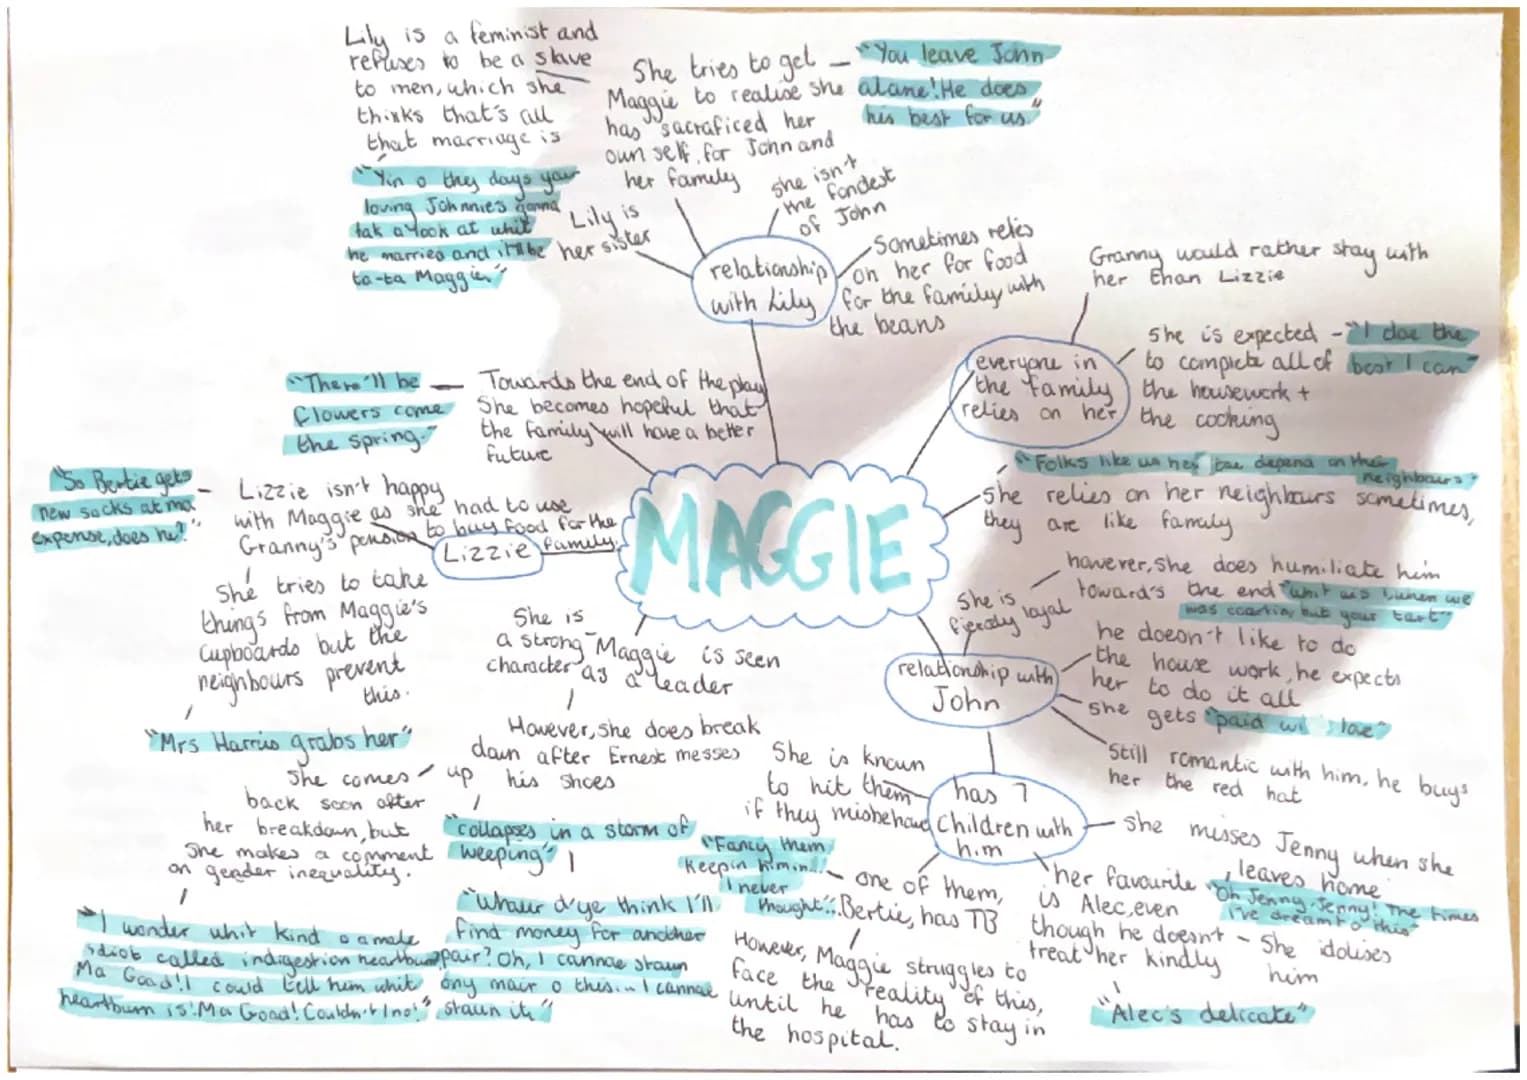 Lily is a feminist and
refuses to be a slave
to men, which she
thinks that's all
that marriage is
"Yin o they days your
loving Johnnies gonna
tak a look at whit
he married and it'll be
ta-ta Maggie"
She tries to get
Maggie to realise she
has sacraficed her
own self, for John and
her family
"You leave John
alane! He does
his best for us."
she isn't
the fondest
of John
Lily is
her sister
relationship
with Lily
Sometimes relies
on her for food
for the family with
the beans
Granny would rather stay with
her than Lizzie
everyone in
the family
relies on her
She is expected - "I dae the
to complete all of best I can"
the housework +
the cooking
"There'll be
flowers come
the spring."
Towards the end of the play
She becomes hopeful that
the family will have a better
future
"Folks like us hev tae depend on their
neighbours"
She relies on her neighbours sometimes,
they are like family
"So Bertie gets
new socks at ma
expense, does he?"
Lizzie isn't happy
with Maggie as she had to use
Granny's pension to buy food for the
family.
Lizzie
MAGGIE
She tries to take
things from Maggie's
cupboards but the
neighbours prevent
this.
"Mrs Harris grabs her"
She is
a strong
character
Maggie is seen
as a leader
However, she does break
down after Ernest messes
up his shoes
"collapses in a storm of
weeping"
"Whaur d'ye think I'll
find money for another
pair? Oh, I cannae staun
ony mair o this... I cannae
staun it"
She comes
back soon after
her breakdown, but
She makes a comment
on gender inequality.
"I wonder whit kind o a male
idiot called indigestion heartburn
Ma Goad! I could tell him whit
heartburn is! Ma Goad! Couldn't I no!"
She is
fiercly loyal
however, she does humiliate him
toward's the end "whit wis I, when we
was coartin, but your tart"
relationship with
John
he doesn't like to do
the house work, he expects
her to do it all
she gets "paid wi love"
Still romantic with him, he buys
her the red hat
has 7
children with
him
She is known
to hit them
if they misbehave
She misses Jenny when she
leaves home
"Oh Jenny, Jenny! The times
I've dreamt o this"
her favourite
is Alec, even
though he doesn't
treat her kindly
She idolises
him
"Alec's delicate"
one of them,
Bertie, has TB
"Fancy them
keepin him in...
I never
thought"..
However, Maggie struggles to
face the reality of this,
until he has to stay in
the hospital.